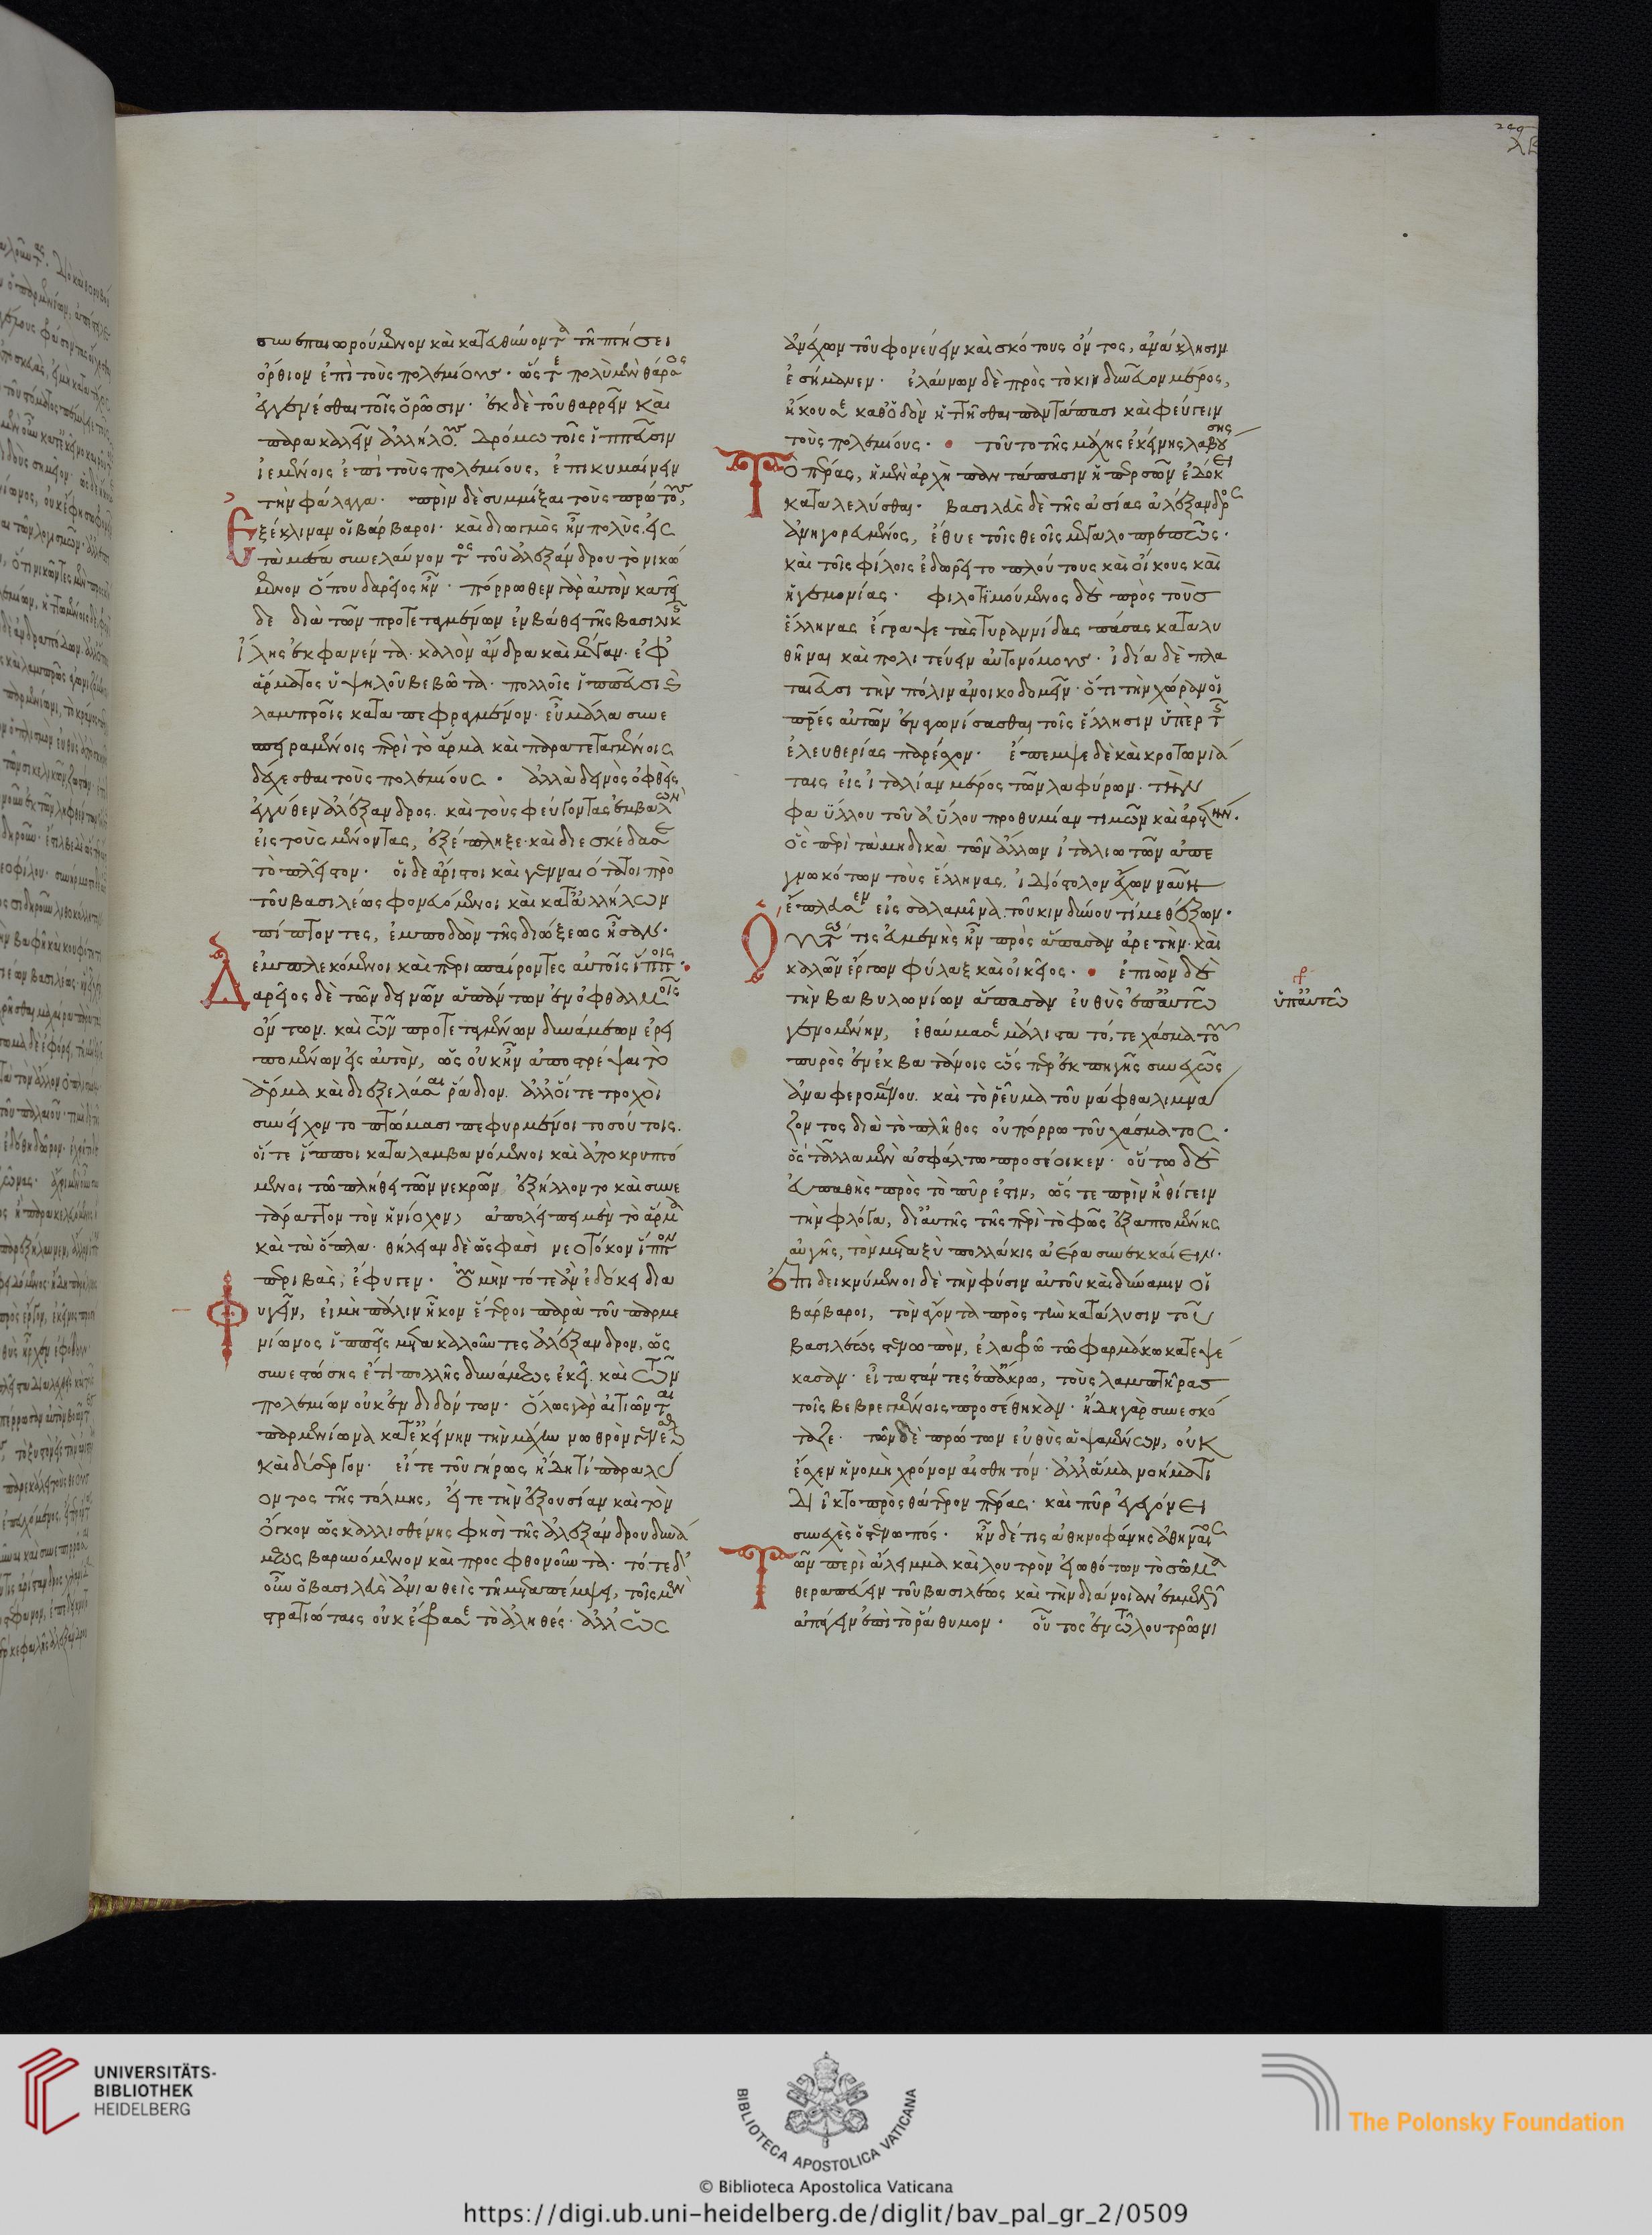 συνεπαιωρούμενον καὶ κατευθύνοντα τῆ πτήσει
ὄρθιον ἐπὶ τοὺς πολεμίους· ὥστε πολὺ μὲν θάρσος
ἐγγενέσθαι τοῖς ὁρῶσιν· ἐκ δὲ τοῦ θαρρεῖν καὶ
παρακαλεῖν ἀλλήλους δρόμω τοῖς ἱππεῦσιν
ἱεμένοις ἐπὶ τοὺς πολεμίους, ἐπικυμαίνειν
τὴν φάλαγγα· πρὶν δὲ συμμίξαι τοὺς πρώτους
ἐξέκλιναν οἱ βάρβαροι· καὶ διωγμὸς ἦν πολὺς, εἰς
τὰ μέσα συνελαύνοντος τοῦ ἀλεξάνδρου τὸ νικώ
μενον ὅπου δαρεῖος ἦν· πόρρωθεν γὰρ αὐτὸν κατεῖ
δε διὰ τῶν προτεταγμένων ἐν βάθει τῆς βασιλικῆς
ἴλης ἐκφανέντα· καλὸν ἄνδρα καὶ μέγαν· ἐφ
ἅρματος ὑψηλοῦ βεβῶτα· πολλοῖς ἱππεῦσι καὶ
λαμπροῖς καταπεφραγμένον· εὖ μάλα συνε
σπειραμένοις περὶ τὸ ἅρμα καὶ παρατεταγμένοις
δέχεσθαι τοὺς πολεμίους· ἀλλὰ δεινὸς ὀφθεὶς
ἐγγύθεν ἀλέξανδρος. καὶ τοὺς φεύγοντας ἐμβαλὼν
εἰς τοὺς μένοντας, ἐξέπληξε καὶ διεσκέδασε
τὸ πλεῖστον· οἱ δὲ ἄριστοι καὶ γενναιότατοι πρὸ
τοῦ βασιλέως φονευόμενοι καὶ κατἀλλήλων
πίπτοντες, ἐμποδὼν τῆς διώξεως ἦσαν·
ἐμπλεκόμενοι καὶ περισπαίροντες αὐτοῖς ἵπποις·
Δαρεῖος δὲ τῶν δεινῶν ἁπάντων ἐν ὀφθαλμοῖς
ὄντων. καὶ τῶν προτεταγμένων δυνάμεων ἐρει
πομένων εἰς αὐτὸν, ὡς οὐκ ἦν ἀποστρέψαι τὸ
ἅρμα καὶ διεξελάσαι ῥάδιον. ἀλλοἵ τε τροχοὶ
συνείχοντο πτώμασι πεφυρμένοι τοσούτοις.
οἵ τε ἵπποι καταλαμβανόμενοι καὶ ἀποκρυπτό
μενοι τῶ πλήθει τῶν νεκρῶν ἐξήλλοντο καὶ συνε
τάραττον τὸν ἡνίοχον, ἀπολείπει μὲν τὸ ἅρμα
καὶ τὰ ὅπλα· θήλειαν δὲ ὥς φασὶ νεοτόκον ἵππον
περιβὰς, ἔφυγεν· οὐ μὴν τότε ἂν ἐδόκει δια
Φυγεῖν, εἰ μὴ πάλιν ἧκον ἕτεροι παρὰ τοῦ παρμε
νίωνος ἱππεῖς μετακαλοῦντες ἀλέξανδρον, ὡς
συνεστώσης ἔτι πολλῆς δυνάμεως ἐκεῖ. καὶ τῶν
πολεμίων οὐκ ἐνδιδόντων· ὅλως γὰρ αἰτιῶνται
παρμενίωνα κατἐκείνην τὴν μάχην νωθρὸν γενέσθαι
καὶ δύσεργον· εἴτε τοῦ γήρως ἤδη τι παραλύ
οντος τῆς τόλμης, εἴτε τὴν ἐξουσίαν καὶ τὸν
ὄγκον ὡς καλλισθένης φησὶ τῆς ἀλεξάνδρου δυνά
μεως βαρυνόμενον καὶ προσφθονοῦντα· τότε δ'
οὖν ὁ βασιλεὺς ἀνιαθεὶς τῆ μεταπέμψει, τοῖς μὲν
στρατιώταις οὐκ ἔφρασε τὸ ἀληθές· ἀλλὡς
ἀνέχων τοῦ φονεύειν καὶ σκότους ὄντος, ἀνάκλησιν
ἐσήμανεν· ἐλαύνων δὲ πρὸς τὸ κινδυνεῦον μέρος,
ἤκουσε καθὁδὸν ἡττῆσθαι παντάπασι καὶ φεύγειν
τοὺς πολεμίους· τοῦτο τῆς μάχης ἐκείνης λαβούσης
Τὸ πέρας, ἡ μὲν ἀρχὴ παντάπασιν ἡ περσῶν ἐδόκει
καταλελύσθαι· βασιλεὺς δὲ τῆς ἀσίας ἀλέξανδρος
ἀνηγορευμένος, ἔθυε τοῖς θεοῖς μεγαλοπρεπῶς·
καὶ τοῖς φίλοις ἐδωρεῖτο πλούτους καὶ οἴκους καὶ
ἡγεμονίας· φιλοτιμούμενος δὲ πρὸς τοὺς
ἕλληνας ἔγραψε τὰς τυραννίδας πάσας καταλυ
θῆναι καὶ πολιτεύειν αὐτονόμους· ἰδία δὲ πλα
ταιεῦσι τὴν πόλιν ἀνοικοδομεῖν· ὅτι τὴν χώραν οἱ
πατέρες αὐτῶν ἐναγωνίσασθαι τοῖς ἕλλησιν ὑπὲρ τῆς
ἐλευθερίας παρέσχον· ἔπεμψε δὲ καὶ κροτωνιά
ταις εἰς ἰταλίαν μέρος τῶν λαφύρων· τὴν
φαΰλλου τοῦ ἀθλητοῦ προθυμίαν τιμῶν καὶ ἀρετήν.
ὃς περὶ τὰ μηδικὰ τῶν ἄλλων ἰταλιωτῶν ἀπε
γνωκότων τοὺς ἕλληνας, ἰδιόστολον ἔχων ναῦν
ἔπλευσεν εἰς σαλαμῖνα. τοῦ κινδύνου τι μεθέξων·
Οὕτως τις εὐμενὴς ἦν πρὸς ἅπασαν ἀρετὴν· καὶ
καλῶν ἔργων φύλαξ καὶ οἰκεῖος· ἐπιὼν δὲ
τὴν βαβυλωνίων ἅπασαν εὐθὺς ἐπαὐτῶ
γενομένην, ἐθαύμασε μάλιστα τό, τε χάσμα τοῦ
πυρὸς ἐν ἐκβατάνοις ὥσπερ ἐκ πηγῆς συνεχῶς
ἀναφερομένου. καὶ τὸ ῥεῦμα τοῦ νάφθα λιμνά
ζοντος διὰ τὸ πλῆθος οὐ πόρρω τοῦ χάσματος·
ὃς τἄλλα μὲν ἀσφάλτω προσέοικεν· οὕτω δὲ
εὐπαθὴς πρὸς τὸ πῦρ ἐστιν, ὥστε πρὶν ἢ θίγειν
τὴν φλόγα, διαὐτῆς τῆς περὶ τὸ φῶς ἐξαπτομένης
αὐγῆς, τὸν μεταξὺ πολλάκις ἀέρα συνεκκαίειν·
Ἐπιδεικνύμενοι δὲ τὴν φύσιν αὐτοῦ καὶ δύναμιν οἱ
βάρβαροι, τὸν ἄγοντα πρὸς τὴν κατάλυσιν τοῦ
βασιλέως στενωπὸν, ἐλαφρῶ τῶ φαρμάκω κατεψέ
κασαν· εἶτα στάντες ἐπἄκρω, τοὺς λαμπτῆρας
τοῖς βεβρεγμένοις προσέθηκαν· ἤδη γὰρ συνεσκό
ταζε· τῶν δὲ πρώτων εὐθὺς ἁψαμένων, οὐκ
ἔσχεν ἡ νομὴ χρόνον αἰσθητόν· ἀλλἅμα νοήματι
διῖκτο πρὸς θάτερον πέρας· καὶ πῦρ ἐγεγόνει
συνεχὲς ὁ στενωπός· ἦν δέ τις ἀθηνοφάνης ἀθηναῖος
Τῶν περὶ ἄλειμμα καὶ λουτρὸν εἰωθότων τὸ σῶμα
θεραπεύειν τοῦ βασιλέως καὶ τὴν διάνοιαν ἐμμελῶς
ἀπάγειν ἐπὶ τὸ ῥάθυμον· οὗτος ἐν τῶ λουτρῶνι
ὑπαὐτῶ
UNIVERSITÄTS-
BIBLIOTHEK
HEIDELBERG
BIBLIOTECA APOSTOLICA VATICANA
The Polonsky Foundation
© Biblioteca Apostolica Vaticana
https://digi.ub.uni-heidelberg.de/diglit/bav_pal_gr_2/0509